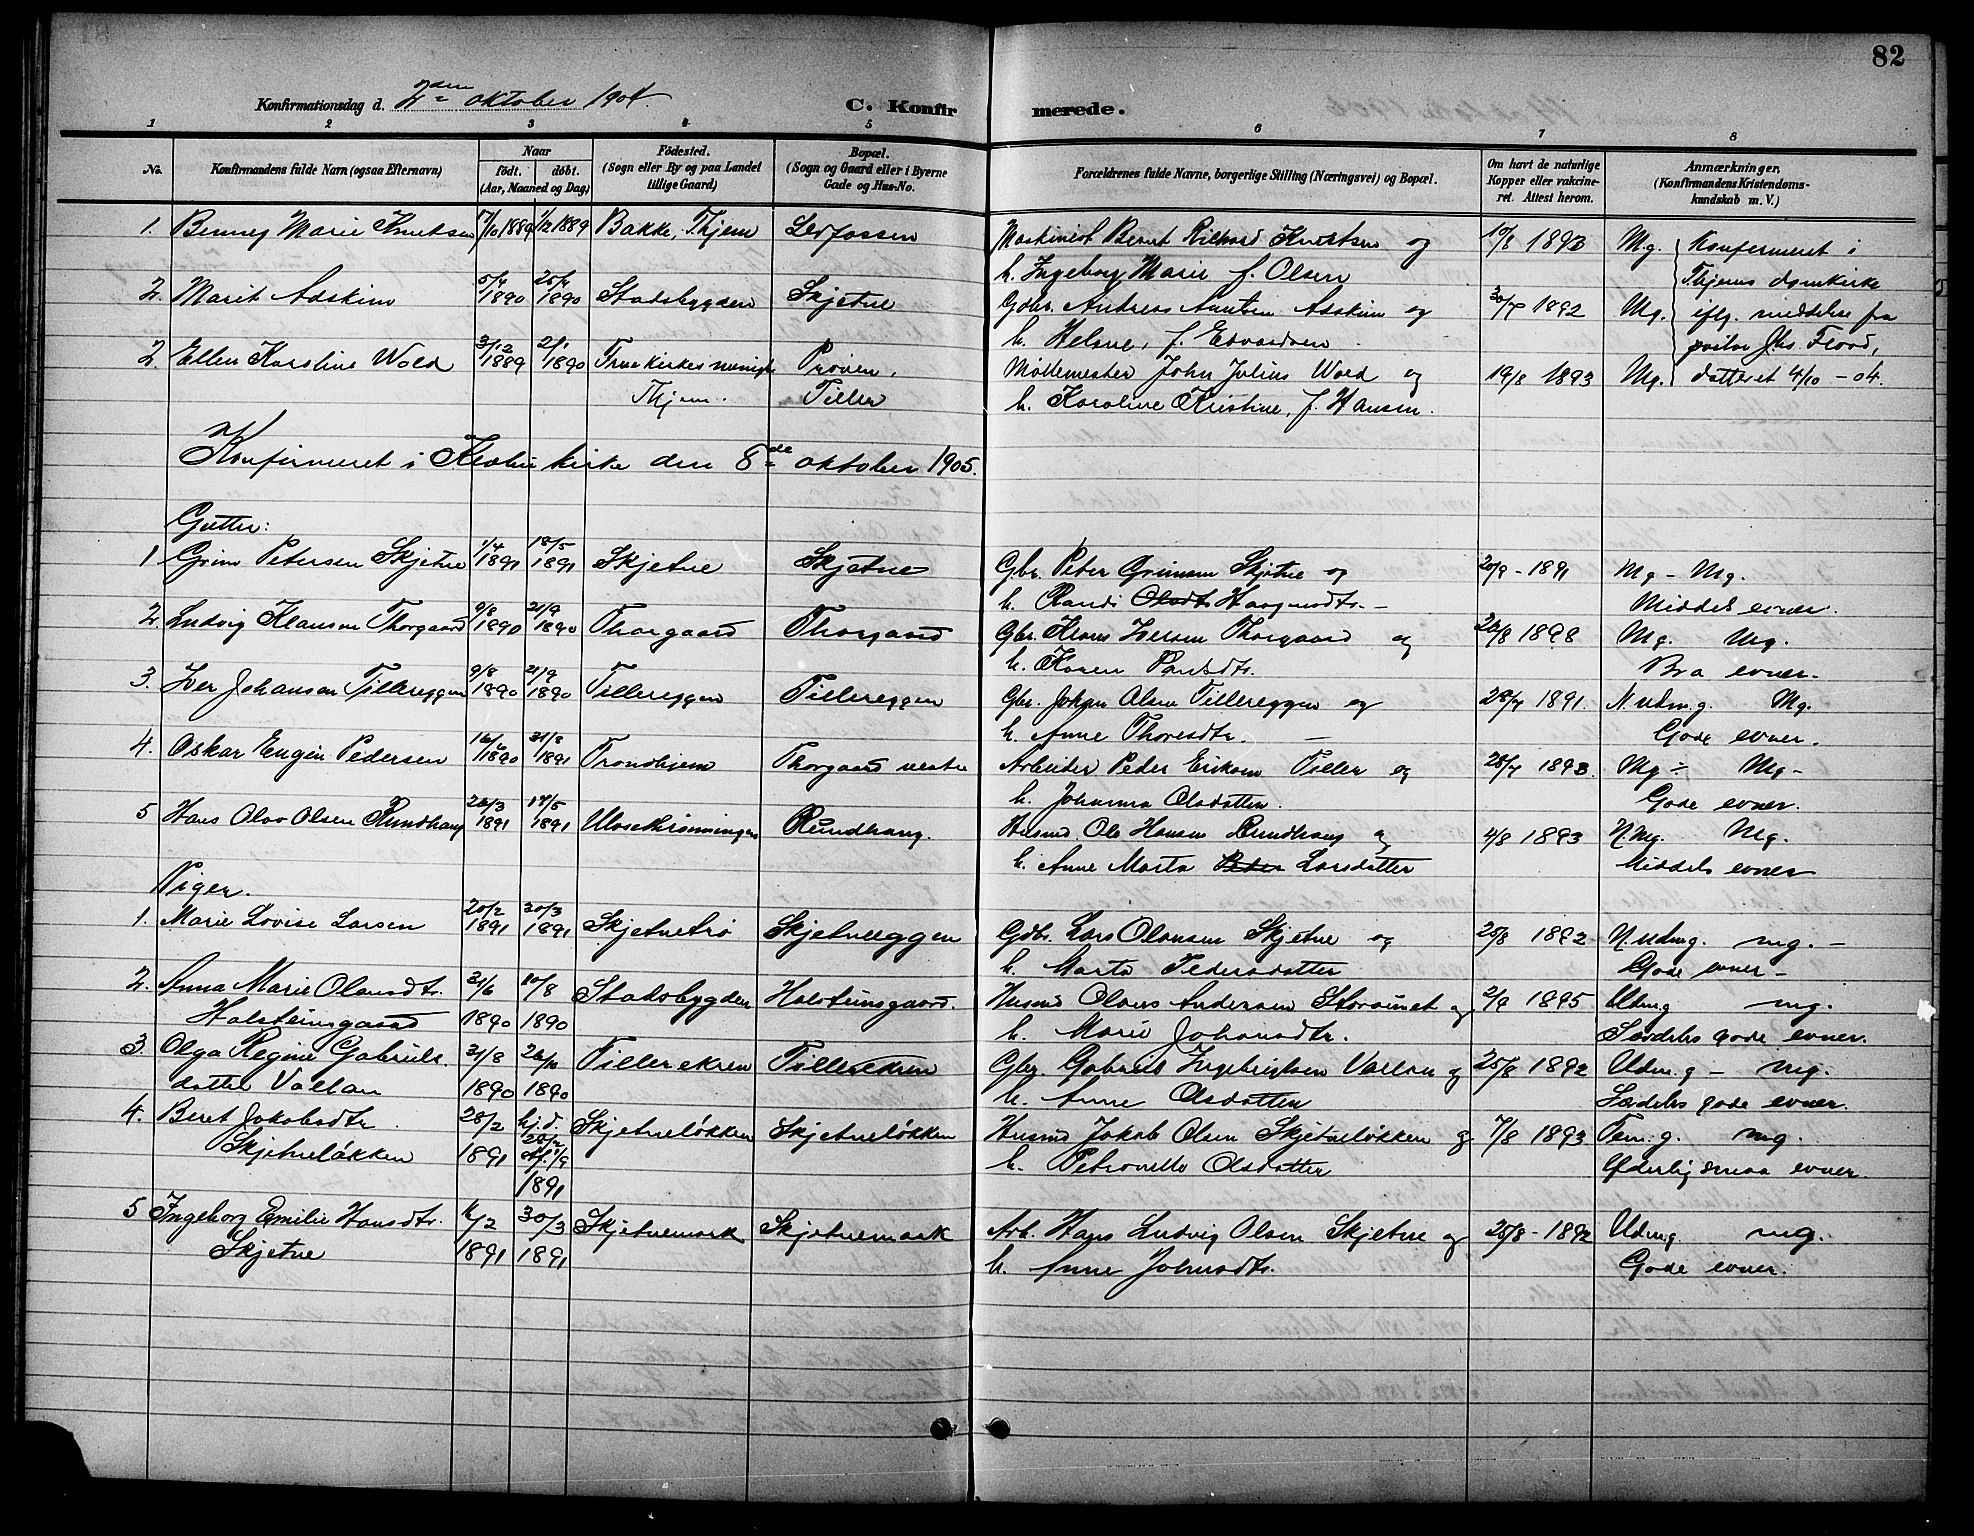 82
Konfirmationsdag d. 2den oktober 1904.
C. Konfirmerede.
1 2 3 4 5 6 7 8
No.
Konfirmandens fulde Navn (ogsaa Efternavn)
Naar
født. døbt.
(Aar, Maaned og Dag)
Fødested.
(Sogn eller By og paa Landet
tillige Gaard)
Bopæl.
(Sogn og Gaard eller i Byerne
Gade og Hus-No.
Forældrenes fulde Navne, borgerlige Stilling (Næringsvei) og Bopæl.
Om havt de naturlige
Kopper eller vakcine-
ret. Attest herom.
Anmærkninger,
(Konfirmandens Kristendoms-
kundskab m. V.)
1. Benney Marie Knutsen 7/10 1889 1/12 1889 Bakke, Thjem Lerfossen Maskinist Bernt Rikhard Knutsen og 10/8 1893 Mg. Konfermeret i
h. Ingeborg Marie f. Olsen Thjems domkirke
2. Marit Askim 5/4 1890 25/4 1890 Stadsbygden Skjetne Gdbr. Andreas Askim og 30/8 1892 Mg. iflg. meddelse fra
h. Helene, f. Edvardsen pastor Jhs. Flood,
2. Ellen Karoline Wold 3/12 1889 2/1 1890 Frue kirkes menigh. Prøven, Møllemester John Julius Wold og 19/8 1893 Mg. datteret 4/10 - 04.
Thjem. Tiller h. Karoline Kristine, f. Hansen.
Konfirmeret i Klæbu kirke den 8de oktober 1905.
Gutter:
1 Grim Petersen Skjetne 1/4 1891 18/5 1891 Skjetne Skjetne Gbr. Peter Grimsen Skjetne og 20/9 - 1891 Mg - Mg.
h. Randi Olsdtr Haagensdtr. - Middels evner.
2. Ludvig Klausen Thorgaard 9/8 1890 21/9 1890 Thorgaard Thorgaard Gbr. Klaus Iversen Thorgaard og 26/8 1898 Mg. Mg.
h. Karen Bra evner.
3. Iver Johansen Tillereggen 9/8 1890 21/9 1890 Tillereggen Tillereggen Gbr. Johan Olsen Tillereggen og 1891. N. udm.g. Mg.
h. Anne Thoresdtr. - Gode evner.
4. Oskar Eugen Pedersen 1890 1891 Trondhjem Thorgaard nestre Arbeider Peder Eriksen Tiller og 28/7 1893. Mg ÷ Mg-
h. Johanna Olsdatter. Gode evner.
5 Hans Olav Olsen Rundhaug 26/3 1891 17/5 1891 Ulsetrønningen Rundhaug. Husmd Ole Hansen Rundhaug og 4/8 1893 N. Mg. Mg.
h. Anne Marta Peder Larsdatter Middels evner
Piger.
1. Marie Lovise Larsen 20/2 1891 30/3 1891 Skjetnetrø Skjetneeggen Gdbr. Lars Olausen Skjetne og 25/8 1892 N. udm.g. mg. -
h. Marta Pedersdatter Gode evner -
2. Anna Marie Olausdtr. 1890 10/8 1890 Stadsbygden Halsteinsgaard. Husmd Olaus Andersen Storaunet og 2/9 1895 Udm.g mg.
Halsteinsgaard h. Marie Johansdtr. Særdeles gode evner.
3. Olga Regine Gabriels- 31/8 1890 26/10 1890 Tillerekren Tillerekren Gbr. Gabriel Ingebrigtsen Vaellan og 25/8 1892 Udm.g - mg.
datter Vaellan h. Anne Olsdatter Særdeles gode evner.
4. Beret Jakobsdtr 28/2 1891 hj.d. 28/2 stf. 1/9 1891 Skjetneløkken Skjetneløkken Husmd Jakob Olsen Skjetneløkken og 7/8 1893 Tem. g. mg.
Skjetneløkken h. Petronelle Olsdatter Yderlig smaa evner.
5 Ingeborg Emilie Hansdtr. 1891 30/3 1891 Skjetnemark Skjetnemark Arb. Hans Ludvig Olsen Skjetne og 25/8 - 1892 Udm.g mg.
Skjetne h. Anne Johnsdtr. Gode evner.